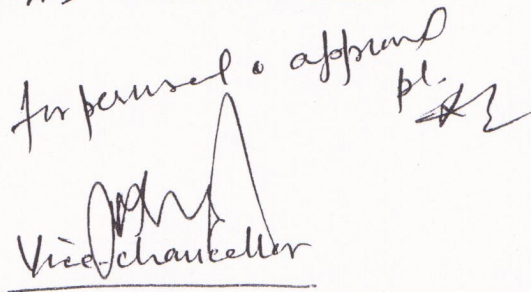 for perusal & approval
pl.
Vice-Chancellor